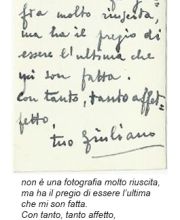 fia molto riuscita,
ma ha il pregio di
essere l'ultima che
mi son fatta.
Con tanto, tanto affet-
fetto,
tuo Giuliano
non è una fotografia molto riuscita,
ma ha il pregio di essere l'ultima
che mi son fatta.
Con tanto, tanto affetto,